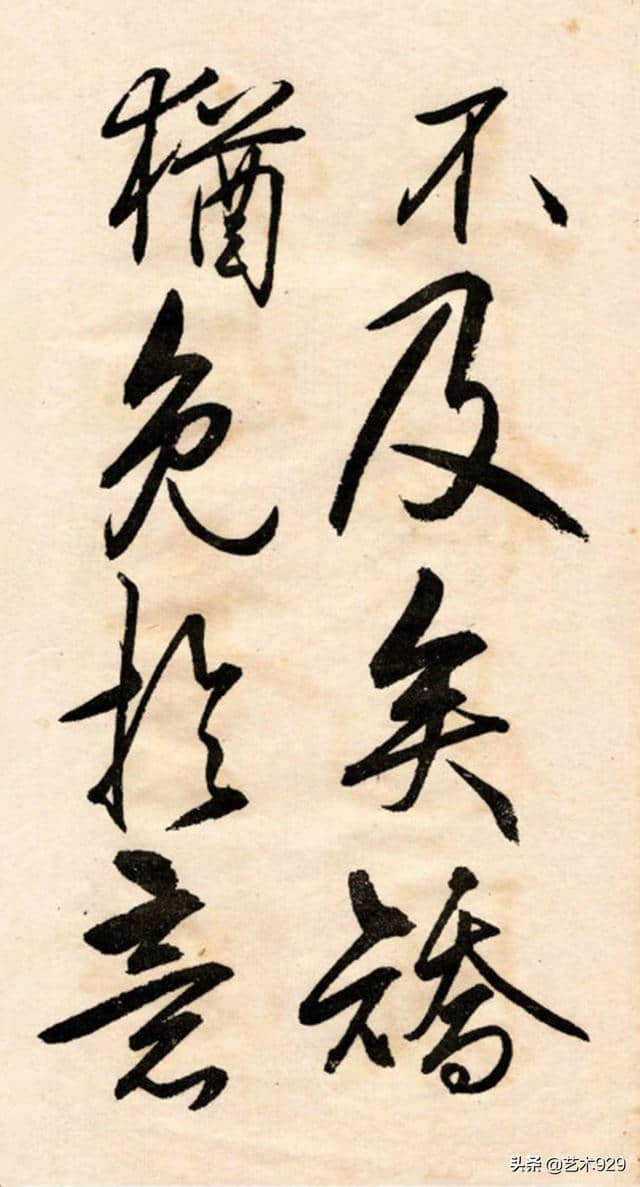 不及矣矯
猶免於意
头条 @艺术929